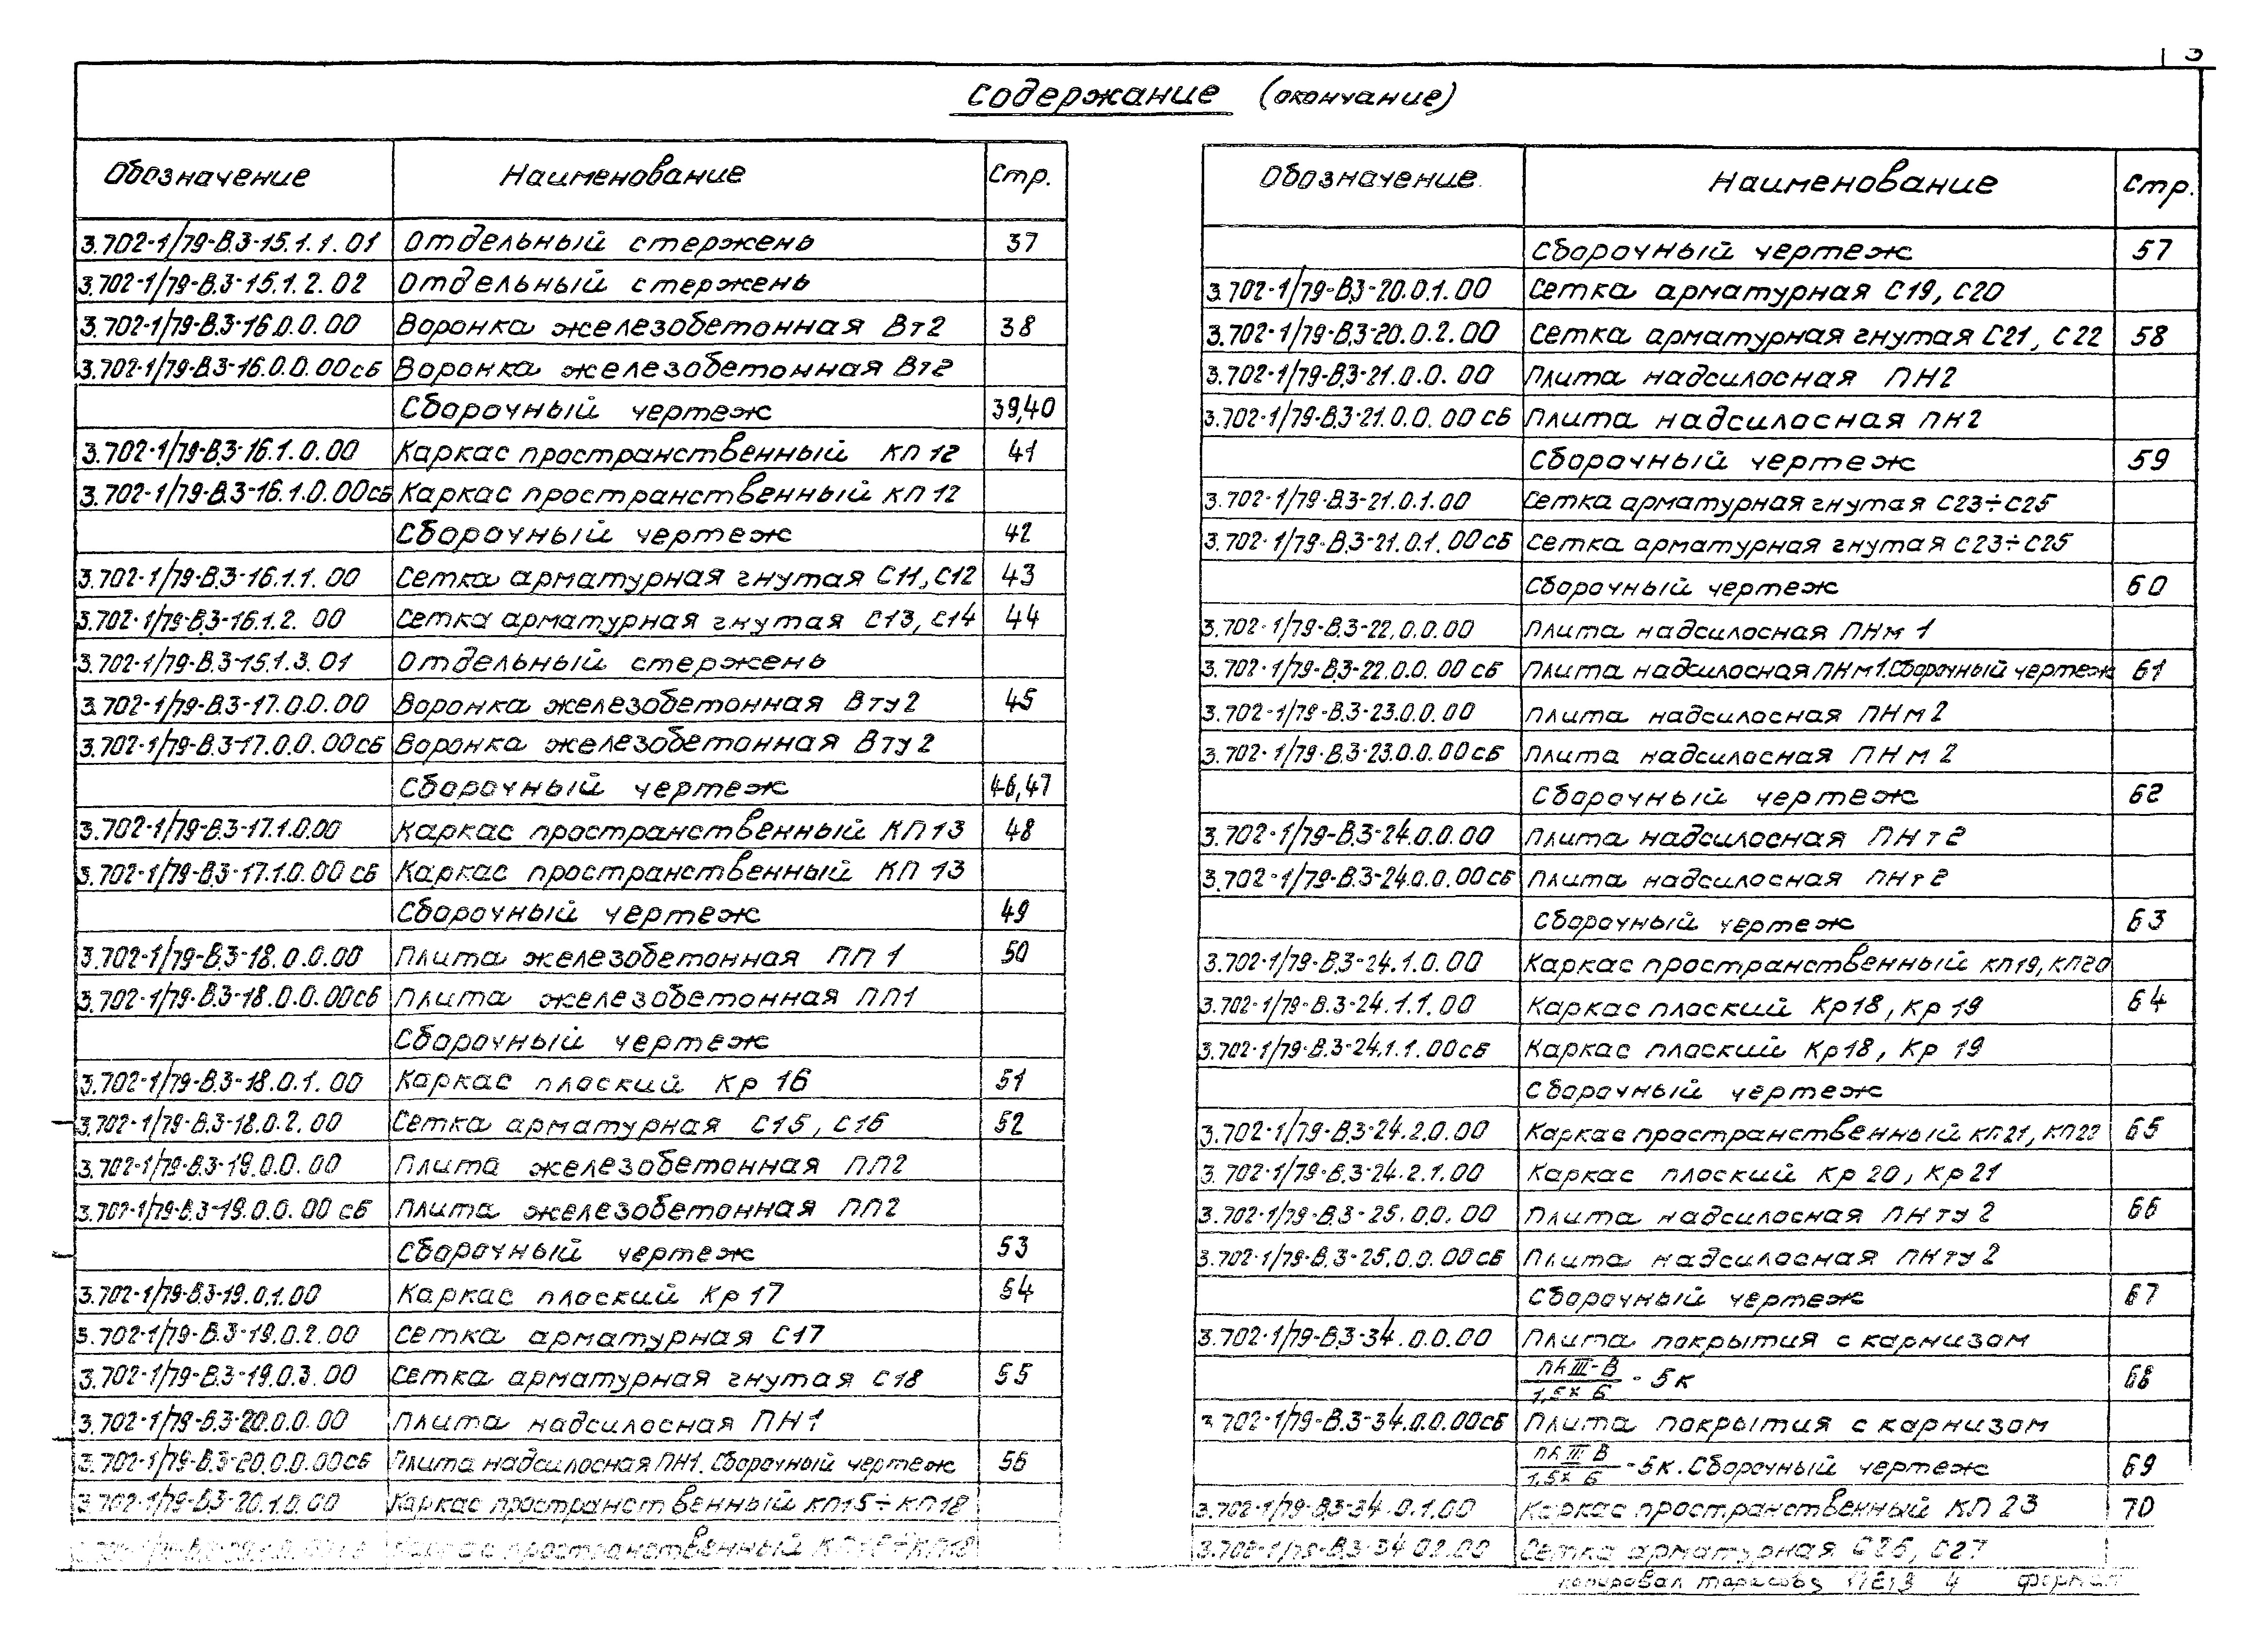 3
Содержание (окончание)
Обозначение Наименование Стр.
3.702-1/79-В.3-15.1.1.01 Отдельный стержень 37
3.702-1/79-В.3-15.1.2.02 Отдельный стержень
3.702-1/79-В.3-16.0.0.00 Воронка железобетонная Вт2 38
3.702-1/79-В.3-16.0.0.00сб Воронка железобетонная Вт2
Сборочный чертеж 39,40
3.702-1/79-В.3-16.1.0.00 Каркас пространственный КП12 41
3.702-1/79-В.3-16.1.0.00сб Каркас пространственный КП12
Сборочный чертеж 42
3.702-1/79-В.3-16.1.1.00 Сетка арматурная гнутая С11, С12 43
3.702-1/79-В.3-16.1.2.00 Сетка арматурная гнутая С13, С14 44
3.702-1/79-В.3-15.1.3.01 Отдельный стержень
3.702-1/79-В.3-17.0.0.00 Воронка железобетонная Вту2 45
3.702-1/79-В.3-17.0.0.00сб Воронка железобетонная Вту2
Сборочный чертеж 46,47
3.702-1/79-В.3-17.1.0.00 Каркас пространственный КП13 48
3.702-1/79-В.3-17.1.0.00сб Каркас пространственный КП13
Сборочный чертеж 49
3.702-1/79-В.3-18.0.0.00 Плита железобетонная ПП1 50
3.702-1/79-В.3-18.0.0.00сб Плита железобетонная ПП1
Сборочный чертеж
3.702-1/79-В.3-18.0.1.00 Каркас плоский Кр16 51
3.702-1/79-В.3-18.0.2.00 Сетка арматурная С15, С16 52
3.702-1/79-В.3-19.0.0.00 Плита железобетонная ПП2
3.702-1/79-В.3-19.0.0.00сб Плита железобетонная ПП2
Сборочный чертеж 53
3.702-1/79-В.3-19.0.1.00 Каркас плоский Кр17 54
3.702-1/79-В.3-19.0.2.00 Сетка арматурная С17
3.702-1/79-В.3-19.0.3.00 Сетка арматурная гнутая С18 55
3.702-1/79-В.3-20.0.0.00 Плита надсилосная ПН1
3.702-1/79-В.3-20.0.0.00сб Плита надсилосная ПН1. Сборочный чертеж 56
3.702-1/79-В.3-20.1.0.00 Каркас пространственный КП15÷КП18
Каркас пространственный КП15÷КП18
Обозначение Наименование Стр.
Сборочный чертеж 57
3.702-1/79-В.3-20.0.1.00 Сетка арматурная С19, С20
3.702-1/79-В.3-20.0.2.00 Сетка арматурная гнутая С21, С22 58
3.702-1/79-В.3-21.0.0.00 Плита надсилосная ПН2
3.702-1/79-В.3-21.0.0.00сб Плита надсилосная ПН2
Сборочный чертеж 59
3.702-1/79-В.3-21.0.1.00 Сетка арматурная гнутая С23÷С25
3.702-1/79-В.3-21.0.1.00сб Сетка арматурная гнутая С23÷С25
Сборочный чертеж 60
3.702-1/79-В.3-22.0.0.00 Плита надсилосная ПНм1
3.702-1/79-В.3-22.0.0.00сб Плита надсилосная ПНм1. Сборочный чертеж 61
3.702-1/79-В.3-23.0.0.00 Плита надсилосная ПНм2
3.702-1/79-В.3-23.0.0.00сб Плита надсилосная ПНм2
Сборочный чертеж 62
3.702-1/79-В.3-24.0.0.00 Плита надсилосная ПНт2
3.702-1/79-В.3-24.0.0.00сб Плита надсилосная ПНт2
Сборочный чертеж 63
3.702-1/79-В.3-24.1.0.00 Каркас пространственный КП19, КП20
3.702-1/79-В.3-24.1.1.00 Каркас плоский Кр18, Кр19 64
3.702-1/79-В.3-24.1.1.00сб Каркас плоский Кр18, Кр19
Сборочный чертеж
3.702-1/79-В.3-24.2.0.00 Каркас пространственный КП21, КП22 65
3.702-1/79-В.3-24.2.1.00 Каркас плоский Кр20, Кр21
3.702-1/79-В.3-25.0.0.00 Плита надсилосная ПНту2 66
3.702-1/79-В.3-25.0.0.00сб Плита надсилосная ПНту2
Сборочный чертеж 67
3.702-1/79-В.3-34.0.0.00 Плита покрытия с карнизом
ПАIII-В
1,5×6 -5к 68
3.702-1/79-В.3-34.0.0.00сб Плита покрытия с карнизом
ПАIII-В
1,5×6 -5к. Сборочный чертеж 69
3.702-1/79-В.3-34.0.1.00 Каркас пространственный КП23 70
3.702-1/79-В.3-34.0.2.00 Сетка арматурная С26, С27
копировал Тарасова 4 формат